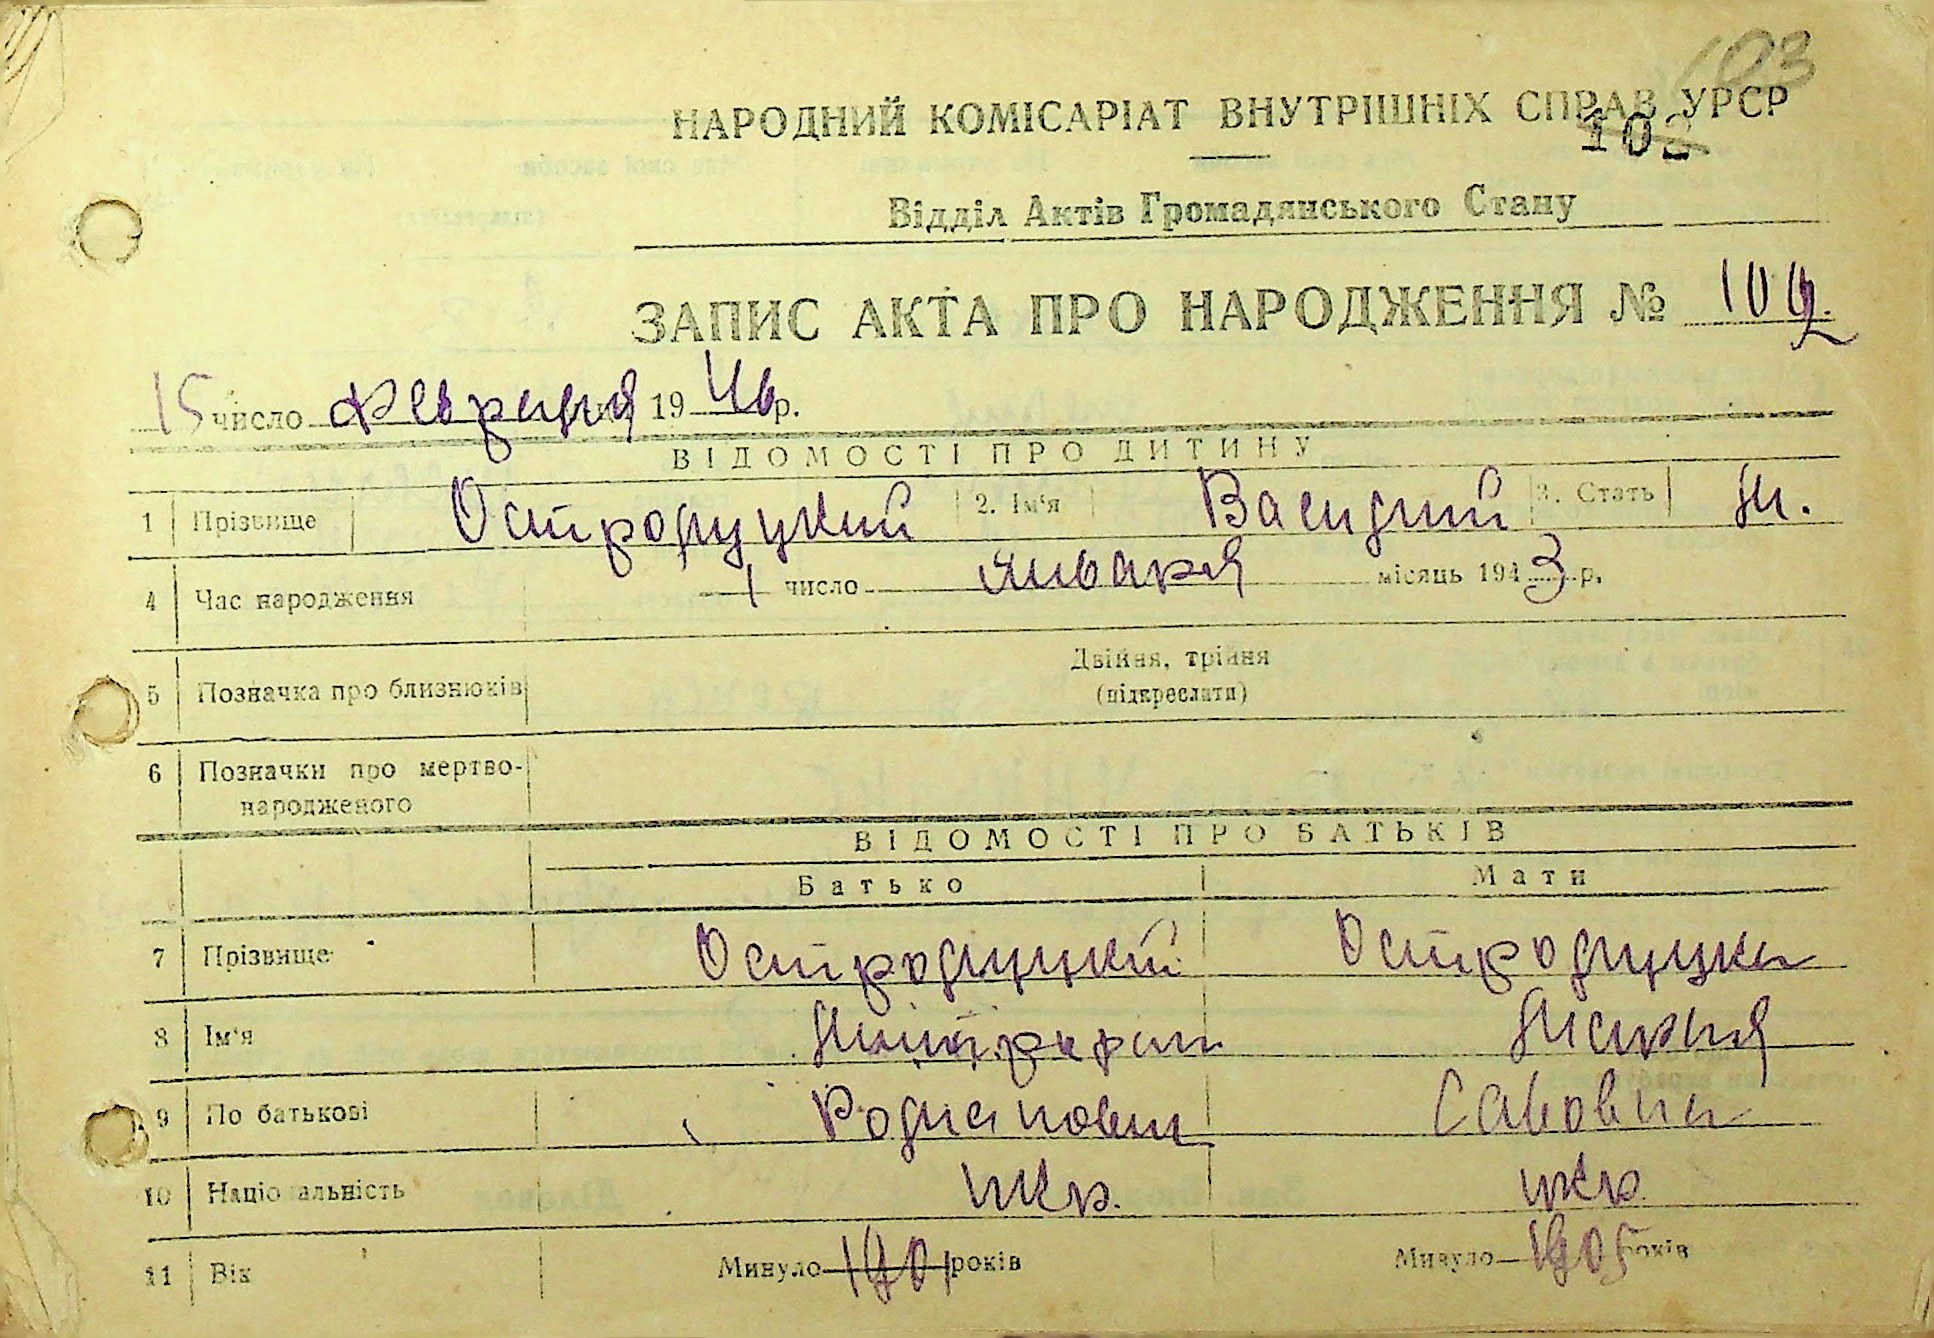 103
НАРОДНИЙ КОМІСАРІАТ ВНУТРІШНІХ СПРАВ УРСР
102
Відділ Актів Громадянського Стану
ЗАПИС АКТА ПРО НАРОДЖЕННЯ № 102.
15 число февраля 1946 р.
ВІДОМОСТІ ПРО ДИТИНУ
1 Прізвище Остролуцкий 2. Ім'я Василий 3. Стать м.
4 Час народження 1 число января місяць 1943 р.
5 Позначка про близнюків Двійня, трійня
(підкреслати)
6 Позначки про мертво-
народженого
ВІДОМОСТІ ПРО БАТЬКІВ
Батько Мати
7 Прізвище Остролуцкий Остролуцка
8 Ім'я Мария
9 По батькові Савовна
10 Національність укр. укр
11 Вік Минуло 1901 років Минуло 1905 років